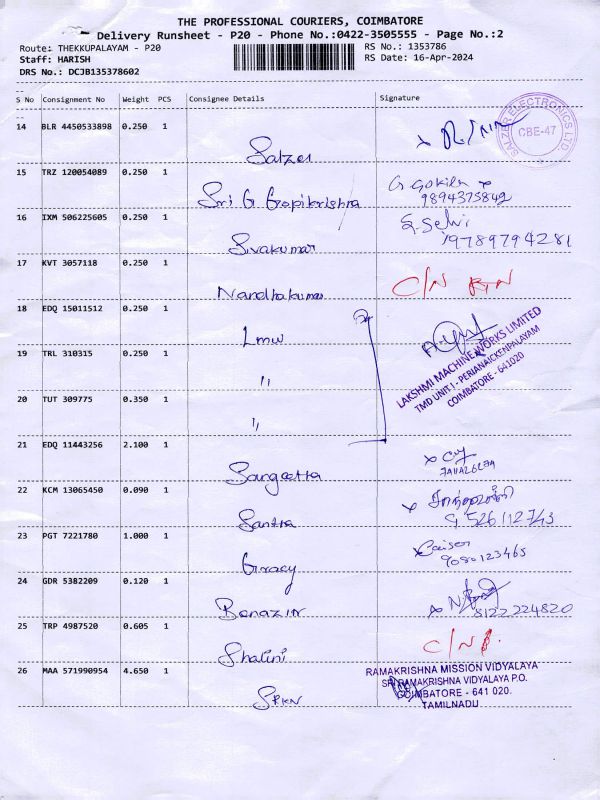 THE PROFESSIONAL COURIERS, COIMBATORE
Delivery Runsheet - P20 - Phone No.:0422-3505555 - Page No.:2
Route: THEKKUPALAYAM - P20
RS No.: 1353786
Staff: HARISH
RS Date: 16-Apr-2024
DRS No.: DCJB135378602
S No Consignment No Weight PCS Consignee Details Signature
14 BLR 4450533898 0.250 1
SALZER ELECTRONICS LTD.
CBE-47
Salzer
15 TRZ 120054089 0.250 1
Sri G Gopikrishna
G Gokila x
9894375842
16 IXM 506225605 0.250 1
Sivakumar
S. Selvi
9789794281
17 KVT 3057118 0.250 1
Nandhakumar
C/N RTN
18 EDQ 15011512 0.250 1
Lmw
LAKSHMI MACHINE WORKS LIMITED
TMD UNIT I - PERIANAICKENPALAYAM
COIMBATORE - 641020
19 TRL 310315 0.250 1
"
20 TUT 309775 0.350 1
"
21 EDQ 11443256 2.100 1
Sangeetha
22 KCM 13065450 0.090 1
Santra
526112743
23 PGT 7221780 1.000 1
Giracy
9080123465
24 GDR 5382209 0.120 1
Benazir
8122224820
25 TRP 4987520 0.605 1
Shalini
C/N
26 MAA 571990954 4.650 1
SRKV
RAMAKRISHNA MISSION VIDYALAYA
SRI RAMAKRISHNA VIDYALAYA P.O.
COIMBATORE - 641 020.
TAMILNADU